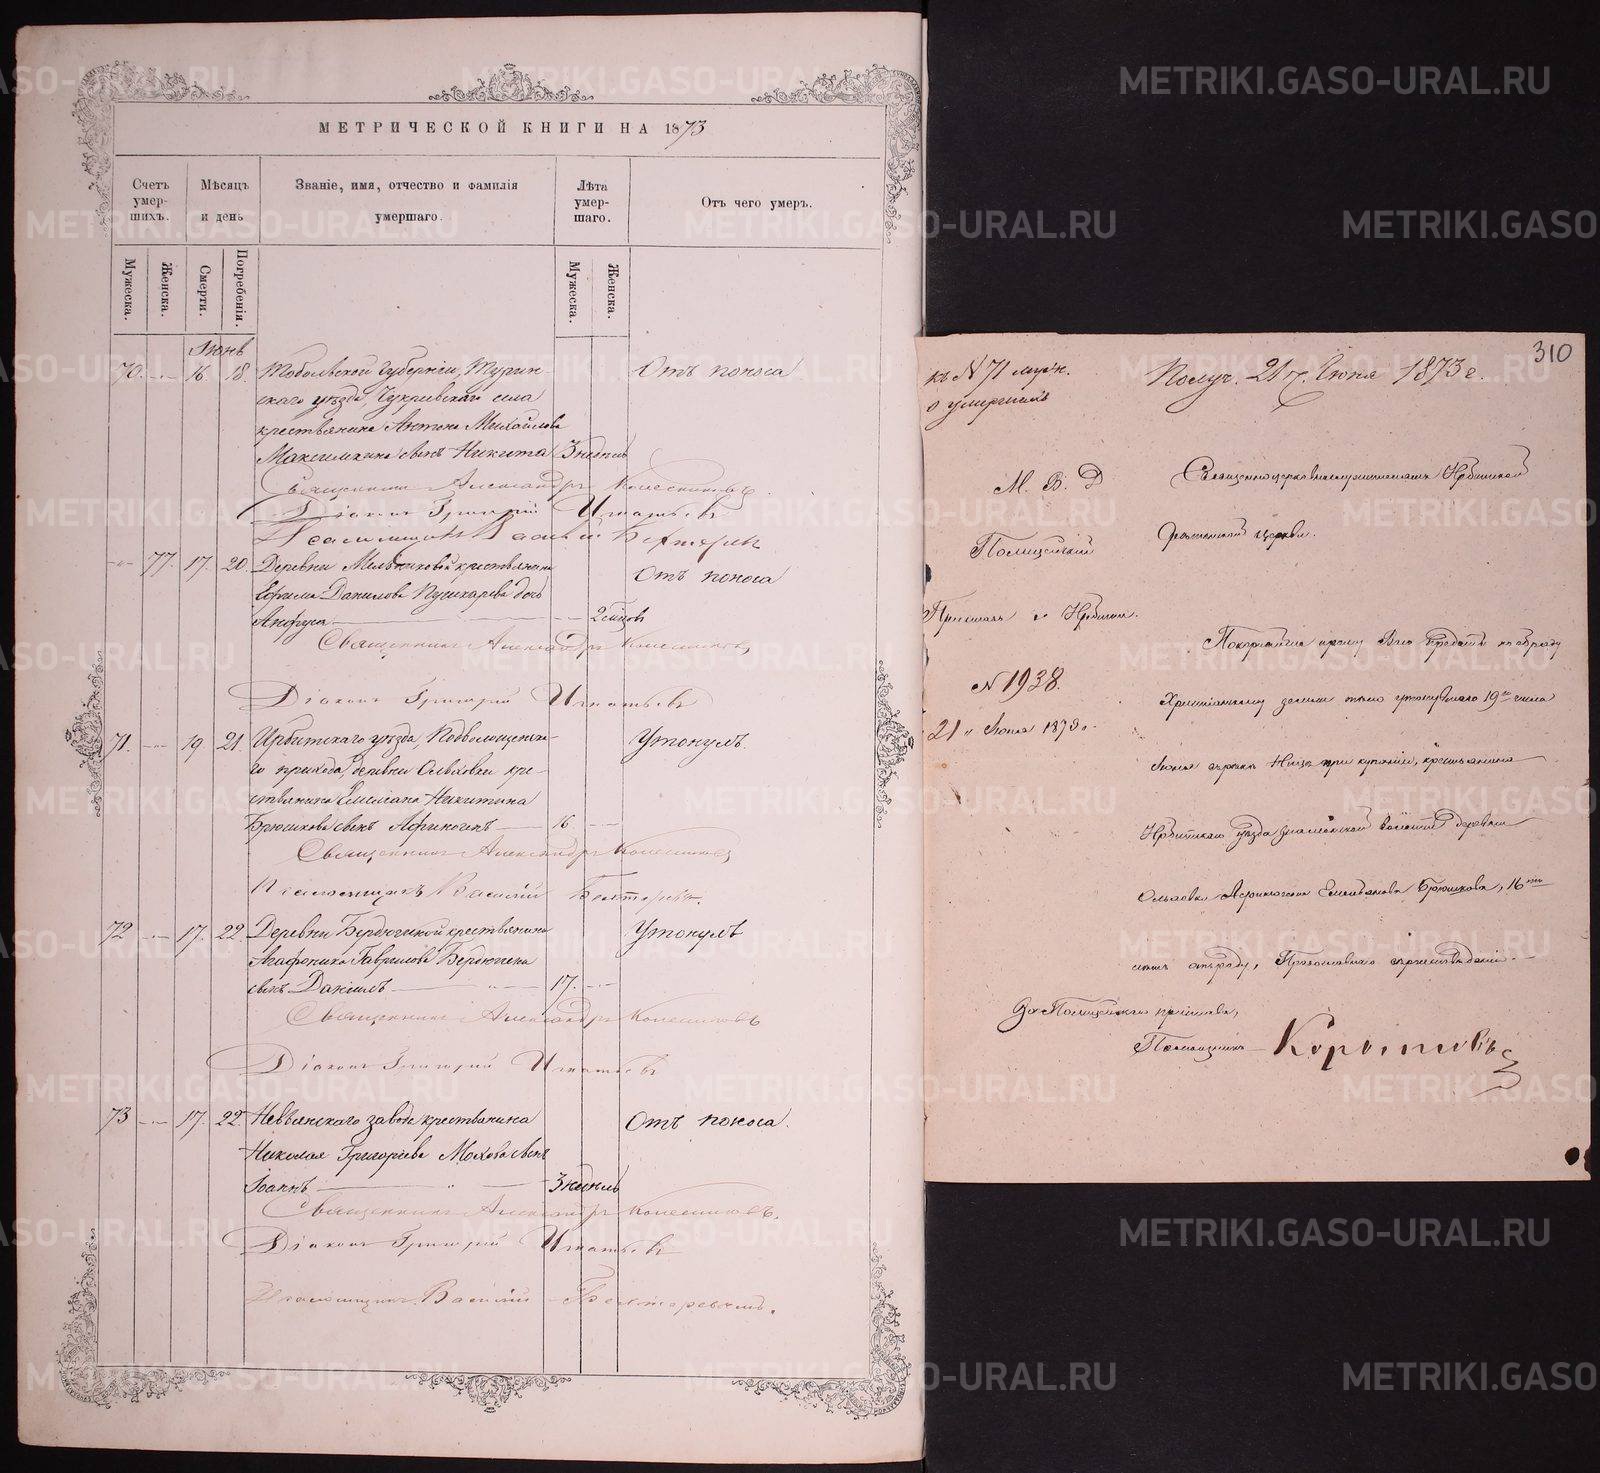 МЕТРИЧЕСКОЙ КНИГИ НА 1873
Счетъ умер- шихъ.
Мѣсяцъ и день
Званіе, имя, отчество и фамилія умершаго.
Лѣта умер- шаго.
Отъ чего умеръ.
Мужеска.
Женска.
Смерти.
Погребенія.
Мужеска.
Женска.
Іюнь
70. 16. 18. Тобольской Губерніи, Турин-
скаго уѣзда, Чукреевскаго села
крестьянина Антона Михайлова
Максимкина сынъ Никита 3 недѣль
Отъ поноса
Священникъ Александръ Колесниковъ.
Діаконъ Григорій Игнатьевъ
Псаломщикъ Василій
77. 17. 20. Деревни Мельниковой крестьянина
Ефима Данилова Пушкарева дочь
Анфуса 2 мѣсяцовъ
Отъ поноса
Священникъ Александръ Колесниковъ
Діаконъ Григорій Игнатьевъ
71. 19 21. Ирбитскаго уѣзда, Подволошенска-
го прихода, деревни Ольховки кре-
стьянина Емельяна Никитина
Брюшкова сынъ Афиногенъ 16
Утонулъ.
Священникъ Александръ Колесниковъ
Псаломщикъ Василій
72 17. 22. Деревни Бердюгиной крестьянина
Агафоника Гаврилова Бердюгина
сынъ Даніилъ 17.
Утонулъ
Священникъ Александръ Колесниковъ
Діаконъ Григорій Игнатьевъ
73 17. 22. Невьянскаго завода крестьянина
Николая Григорьева Мохова сынъ
Іоаннъ 3 недѣль
Отъ поноса.
Священникъ Александръ Колесниковъ.
Діаконъ Григорій Игнатьевъ
Псаломщикъ Василій
310
къ № 71 муж.
о умершихъ
Получ. 21 г. Іюня 1873 г.
М. В. Д
Полицейскій
Приставъ г. Ирбити.
№ 1938.
21 Іюня 1873 г.
Священноцерковнослужителямъ Ирбитской
церкви.
Покорнѣйше прошу Васъ предать по обряду
Христіанскому землѣ тѣло утонувшаго 19го числа
Іюня въ рѣкѣ Ницѣ при купаніи, крестьянина
Ирбитскаго уѣзда волости деревни
Ольховки Афиногена Емельянова Брюшкова, 16ти
лѣтъ отъ роду, Православнаго вѣроисповѣданія.
За Полицейскаго пристава,
Помощникъ
METRIKI.GASO-URAL.RU